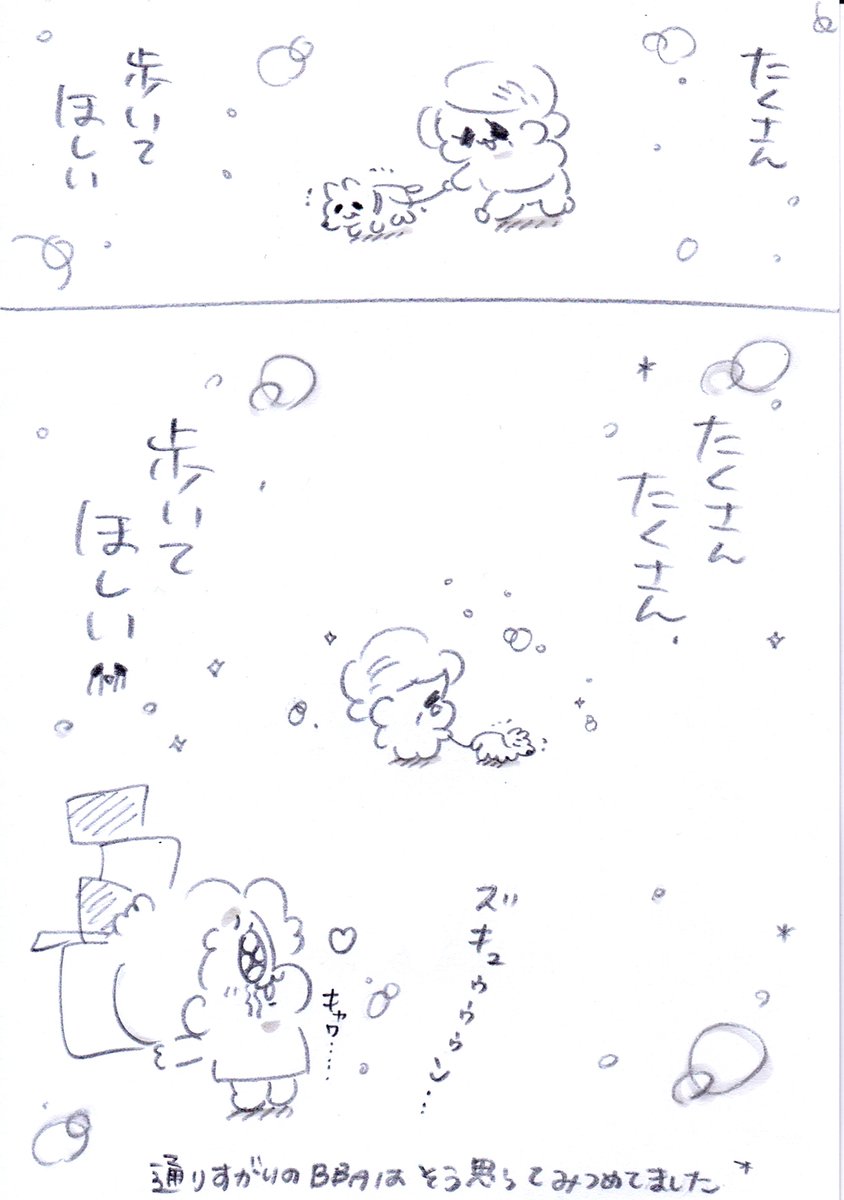 たくさん
歩いて
ほしい
たくさん
たくさん
歩いて
ほしい
ズキュゥゥゥン…
キャワ……
通りすがりのBBAはそう思ってみつめてました*